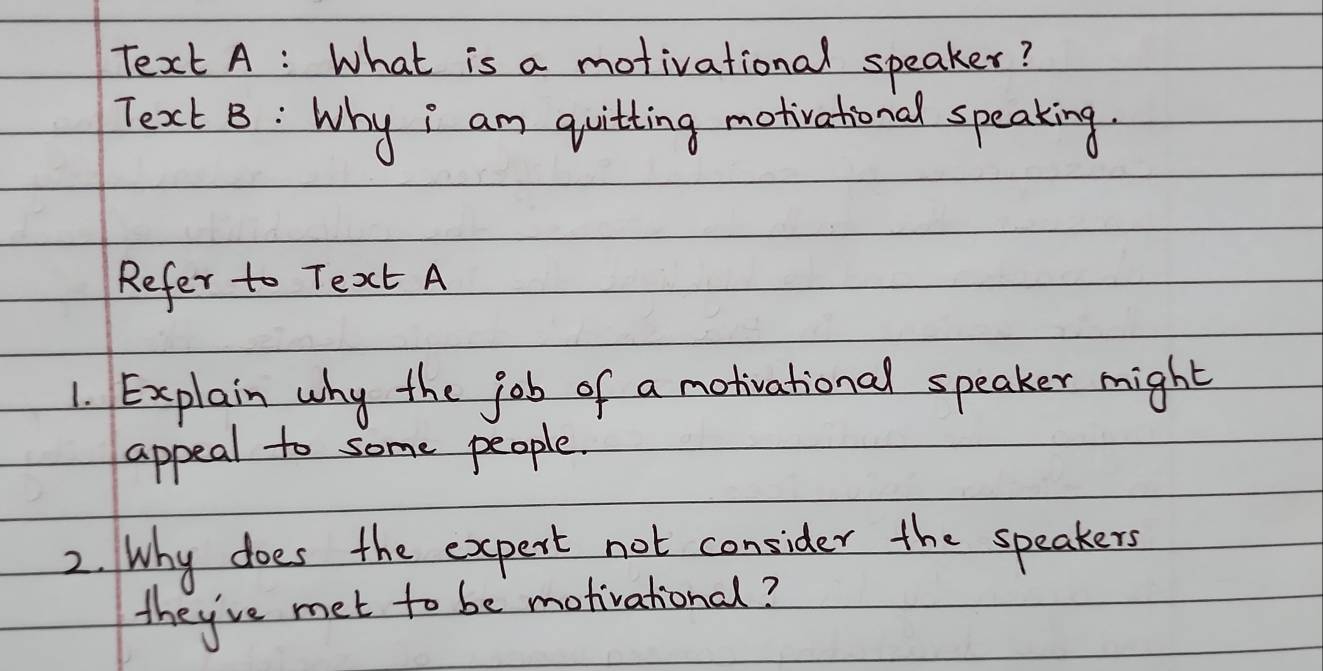 Text A : What is a motivational speaker?
Text B : Why i am quitting motivational speaking.
Refer to Text A
1. Explain why the job of a motivational speaker might
appeal to some people.
2. Why does the expert not consider the speakers
they've met to be motivational?